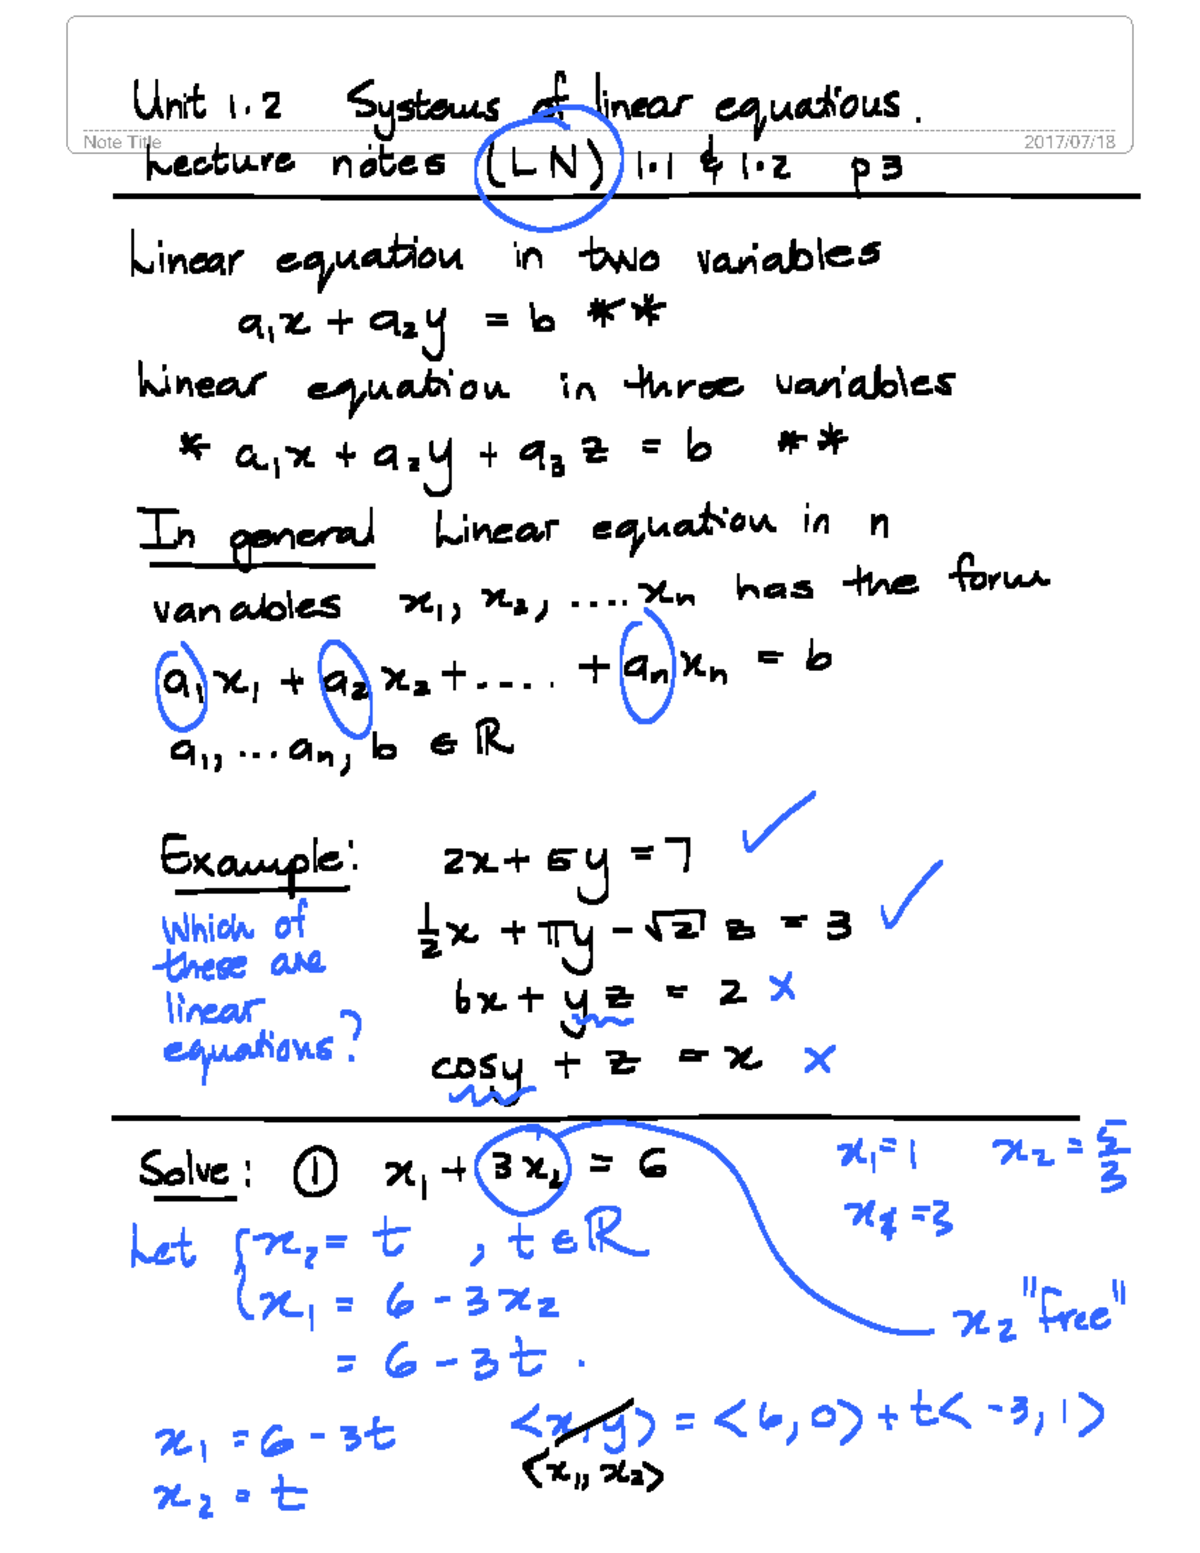 Unit 1.2 Systems of linear equations.
Note Title 2017/07/18
Lecture notes (LN) 1.1 & 1.2 p3
Linear equation in two variables
a₁x + a₂y = b **
Linear equation in three variables
* a₁x + a₂y + a₃z = b **
In general Linear equation in n
variables x₁, x₂, .... xₙ has the form
a₁x₁ + a₂x₂ + .... + aₙxₙ = b
a₁, ... aₙ, b ∈ ℝ
Example: 2x + 5y = 7 ✓
Which of these are linear equations?
½x + πy - √2 z = 3 ✓
6x + yz = 2 x
cosy + z = x x
Solve: ① x₁ + 3x₂ = 6 x₁ = 1 x₂ = 5/3
=3
Let { x₂ = t , t ∈ ℝ
x₁ = 6 - 3x₂ x₂ "free"
= 6 - 3t .
x₁ = 6 - 3t <x, y> = <6, 0> + t< -3, 1>
<x₁, x₂>
x₂ = t